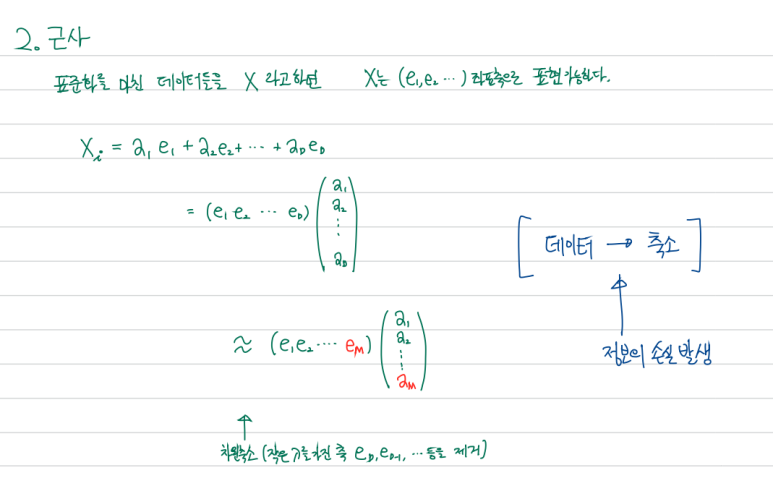 2. 근사
표준화를 마친 데이터들을 X 라고하면 X는 (e₁,e₂ ⋯ ) 좌표축으로 표현가능하다.
Xᵢ = a₁ e₁ + a₂e₂+ ⋯ + a_D e_D
= (e₁ e₂ ⋯ e_D) (a₁ a₂ ⋮ a_D)
[ 데이터 → 축소 ]
≈ (e₁e₂ ⋯ e_M) (a₁ a₂ ⋮ a_M)
정보의 손실 발생
차원축소 (작은 λ를 가진 축 e_D, e_D-1, ⋯ 등을 제거)